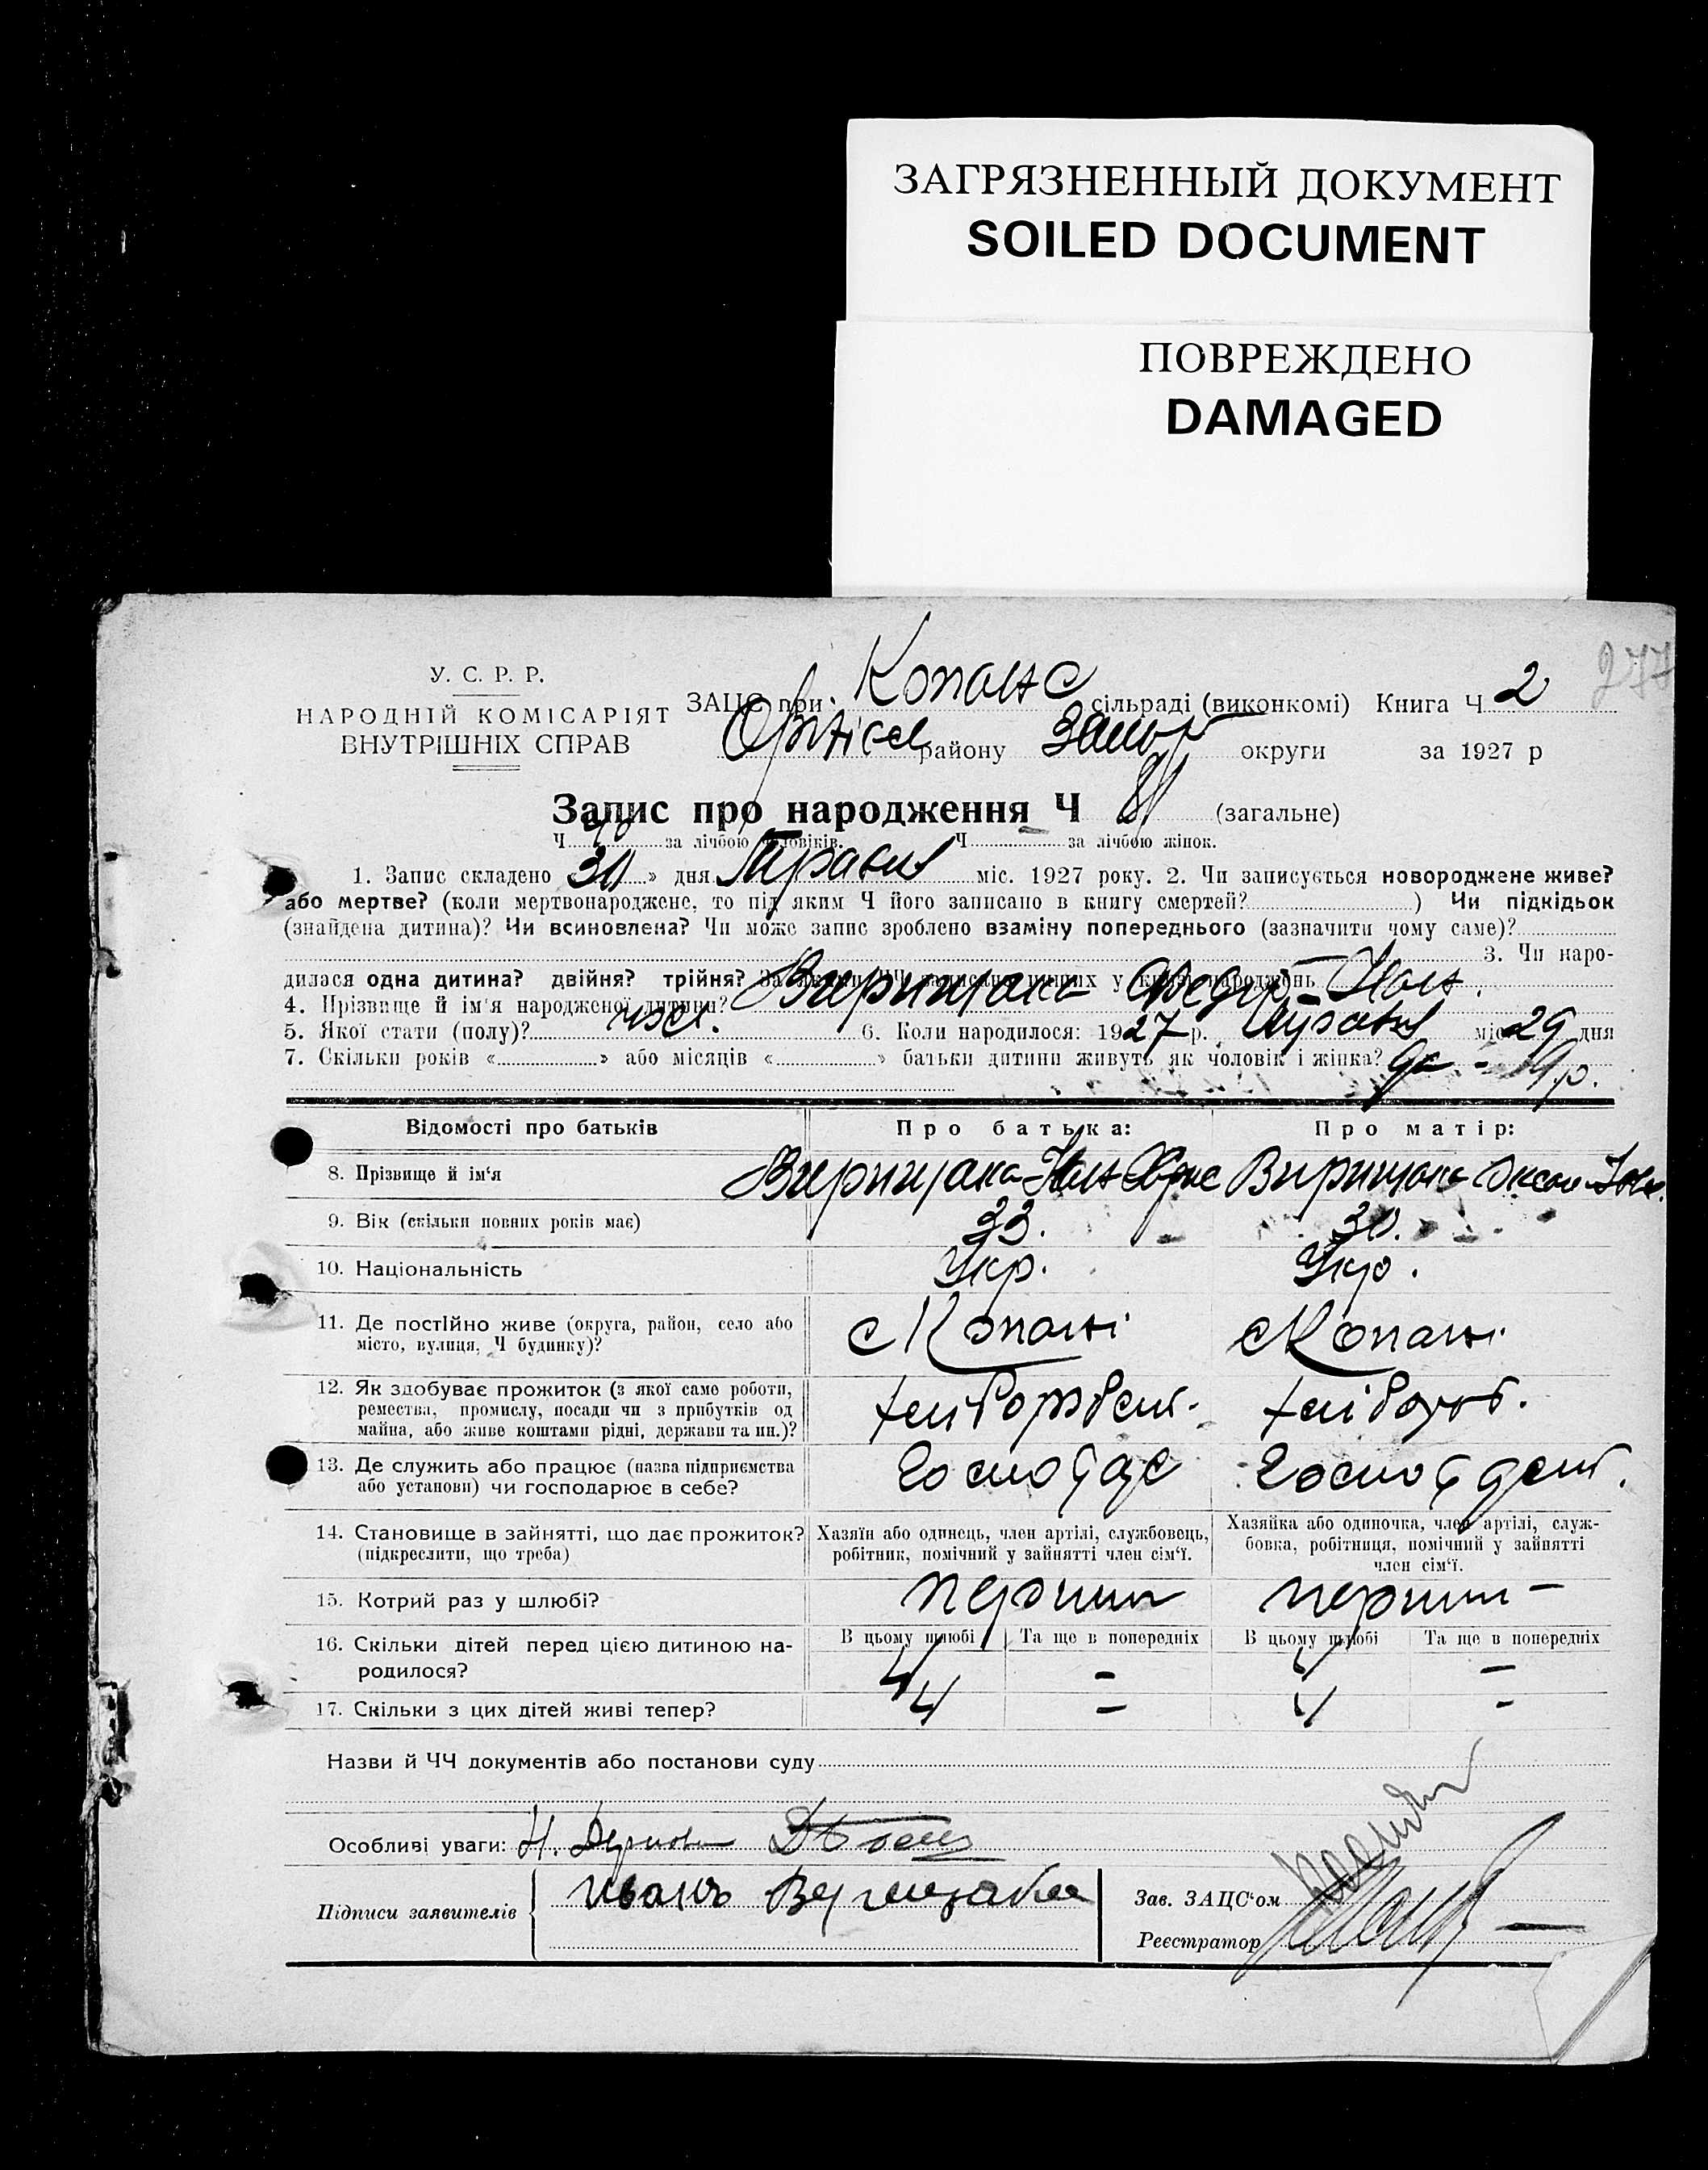 ЗАГРЯЗНЕННЫЙ ДОКУМЕНТ
SOILED DOCUMENT
ПОВРЕЖДЕНО
DAMAGED
277
У. С. Р. Р.
НАРОДНІЙ КОМІСАРІЯТ
ВНУТРІШНІХ СПРАВ
ЗАЦС при Копанс сільраді (виконкомі) Книга Ч 2
Оріхів району Запор округи за 1927 р
Запис про народження Ч (загальне)
Ч 40 за лічбою чоловіків. Ч за лічбою жінок.
1. Запис складено « 30 » дня Травня міс. 1927 року. 2. Чи записується новороджене живе?
або мертве? (коли мертвонароджене, то під яким Ч його записано в книгу смертей? ) Чи підкідьок
(знайдена дитина)? Чи всиновлена? Чи може запис зроблено взаміну попереднього (зазначити чому саме)?
3. Чи наро-
дилася одна дитина? двійня? трійня? За якими ЧЧ записано інших у книзі народжень
4. Прізвище й ім'я народженої дитини? Вирищака Федір Іван.
5. Якої стати (полу)? чол. 6. Коли народилося: 1927 р. Травня міс 29 дня
7. Скільки років « » або місяців « » батьки дитини живуть як чоловік і жінка?
Відомості про батьків Про батька: Про матір:
8. Прізвище й ім'я Вирищака Іван Вирищака Оксан
9. Вік (скільки повних років має) 33. 30.
10. Національність Укр. Укр.
11. Де постійно живе (округа, район, село або с Копані с Копані
місто, вулиця, Ч будинку)?
12. Як здобуває прожиток (з якої саме роботи,
ремества, промислу, посади чи з прибутків од
майна, або живе коштами рідні, держави та ин.)?
13. Де служить або працює (назва підприємства
або установи) чи господарює в себе?
14. Становище в зайнятті, що дає прожиток? Хазяїн або одинець, член артілі, службовець, Хазяйка або одиночка, член артілі, служ-
(підкреслити, що треба) робітник, помічний у зайнятті член сім'ї. бовка, робітниця, помічний у зайнятті
член сім'ї.
15. Котрий раз у шлюбі? перший перший
16. Скільки дітей перед цією дитиною на- В цьому шлюбі Та ще в попередніх В цьому шлюбі Та ще в попередніх
родилося? 4 – 4 –
17. Скільки з цих дітей живі тепер? 4 – 4 –
Назви й ЧЧ документів або постанови суду
Особливі уваги:
Підписи заявителів Иванъ
Зав. ЗАЦС'ом
Реєстратор